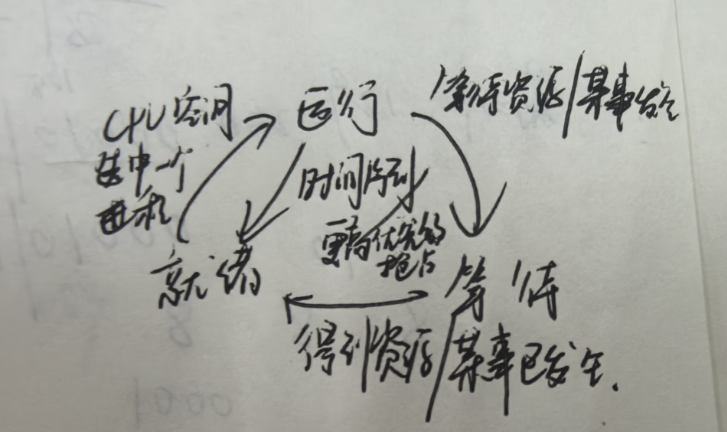 CPU空闲
选中一个
进程
运行
等待资源/某事发生
时间片到
更高优先级
抢占
就绪
等待
得到资源/某事已发生.